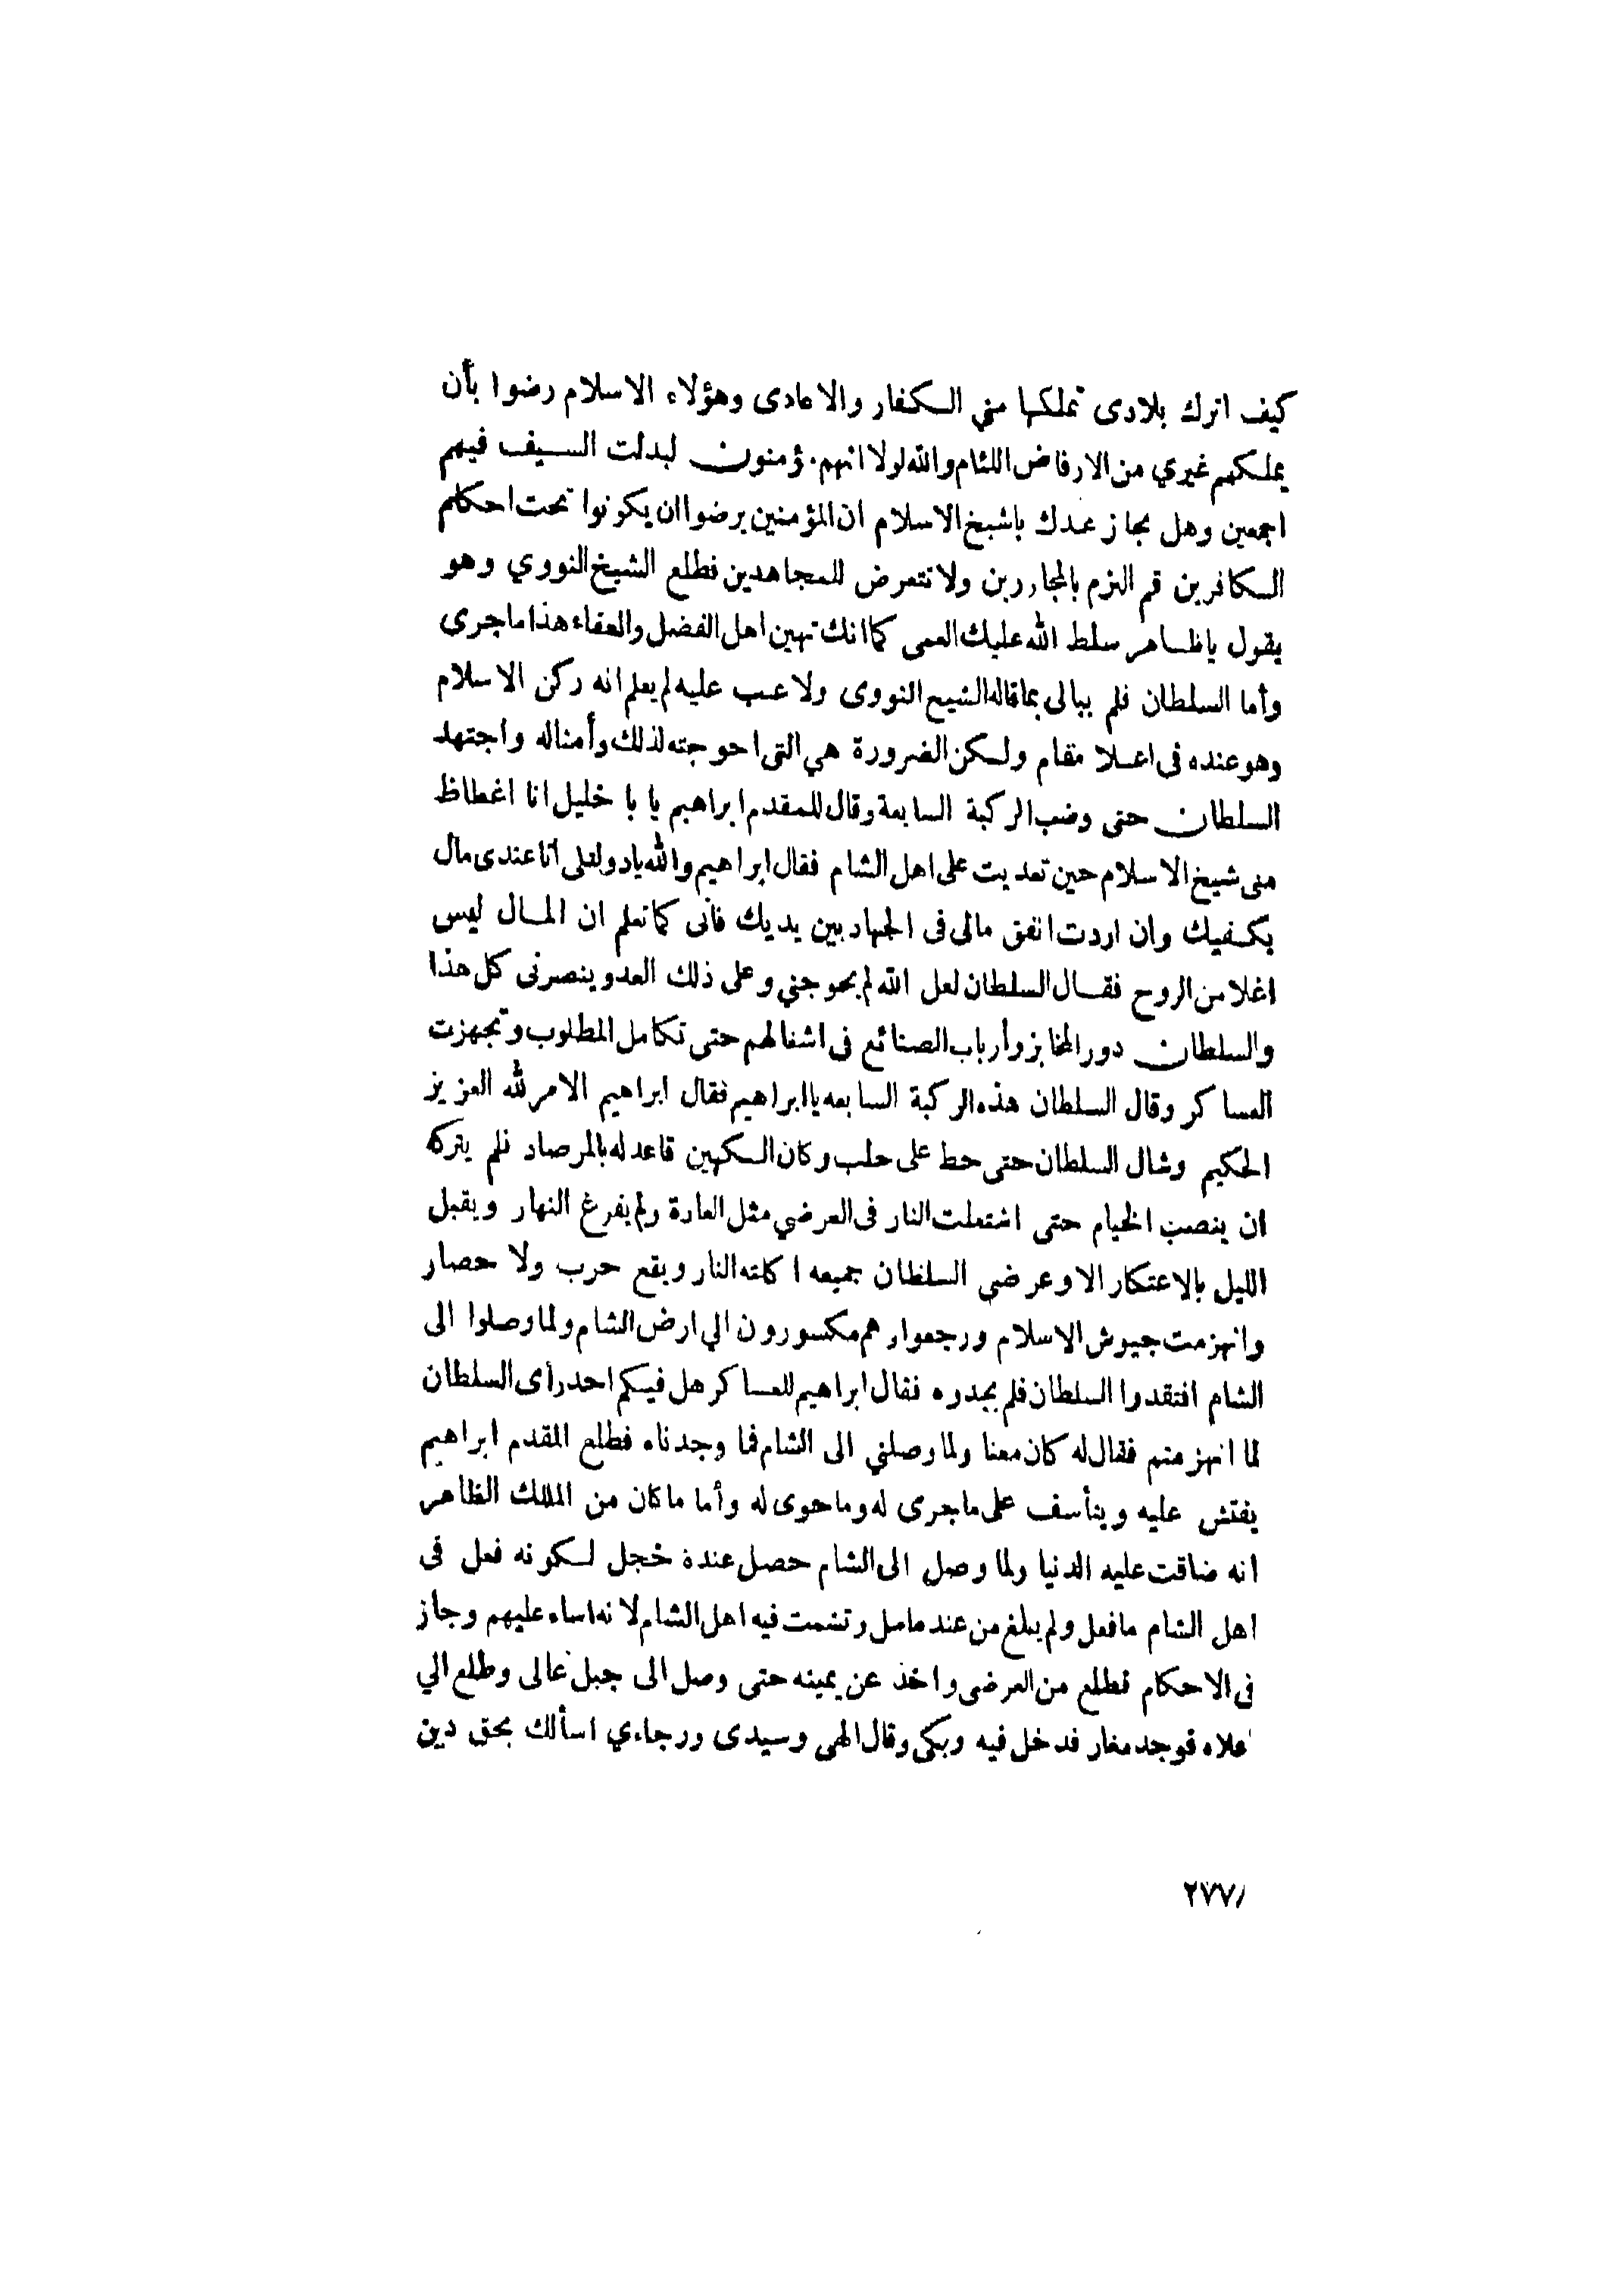 كيف اترك بلادى تملكها مني الكفار والاعادى وهؤلاء الاسلام رضوا بأن
يملكهم غيري من الارفاض اللئام والله لولا انهم مؤمنون لبدلت السيف فيهم
اجمعين وهل بجاز عندك ياشيخ الاسلام ان المؤمنين يرضوا ان يكونوا تحت احكام
الكافرين قم الزم بالمجاورين ولا تتعرض للمجاهدين فطلع الشيخ النووي وهو
يقول ياظاهر سلط الله عليك العمى كما انك تهين اهل الفضل والعقاء هذا ماجرى
وأما السلطان فلم يبالى بماقاله الشيخ النووى ولا عتب عليه لم يعلم انه ركن الاسلام
وهو عنده فى اعلا مقام ولكن الضرورة هي التى احوجته لذلك وأمثاله واجتهد
السلطان حتى وضب الركبة السابعة وقال للمقدم ابراهيم يا با خليل انا اغطاظ
منى شيخ الاسلام حين تعديت على اهل الشام فقال ابراهيم والله يادولتلى انا عندى مال
يكفيك وان اردت انفق مالى فى الجهاد بين يديك فأنى كما تعلم ان المال ليس
اغلا من الروح فقال السلطان لعل الله لم يحوجني وعلى ذلك العدو ينصرنى كل هذا
والسلطان دور المخابز وأرباب الصنائع فى اشغالهم حتى تكامل المطلوب وتجهزت
العساكر وقال السلطان هذه الركبة السابعه يا ابراهيم فقال ابراهيم الامر لله العزيز
الحكيم وشال السلطان حتى حط على حلب وكان الكهين قاعد له بالمرصاد فلم يتركه
ان ينصب الخيام حتى اشتعلت النار فى العرضي مثل العادة ولم يفرغ النهار ويقبل
الليل بالاعتكار الا وعرضي السلطان جميعه اكلته النار ويقع حرب ولا حصار
وانهزمت جيوش الاسلام ورجعوا وهم مكسورون الي ارض الشام ولما وصلوا الى
الشام افتقدوا السلطان فلم يجدوه فقال ابراهيم للعساكر هل فيكم احد رأى السلطان
لما انهزمتم فقال له كان معنا ولما وصلني الى الشام فما وجدناه فطلع المقدم ابراهيم
يفتش عليه ويتأسف على ماجرى له وما حوى له وأما ما كان من الملك الظاهر
انه ضاقت عليه الدنيا ولما وصل الى الشام حصل عنده خجل لكونه فعل فى
اهل الشام مافعل ولم يبلغ من عند مامل وتشمت فيه اهل الشام لانه اساء عليهم وجاز
فى الاحكام فطلع من العرضى واخذ عن يمينه حتى وصل الى جبل عالى وطلع الي
اعلاه فوجد مغار فدخل فيه وبكى وقال الهى وسيدى ورجاءي اسألك بحق دين
٢٧٧/